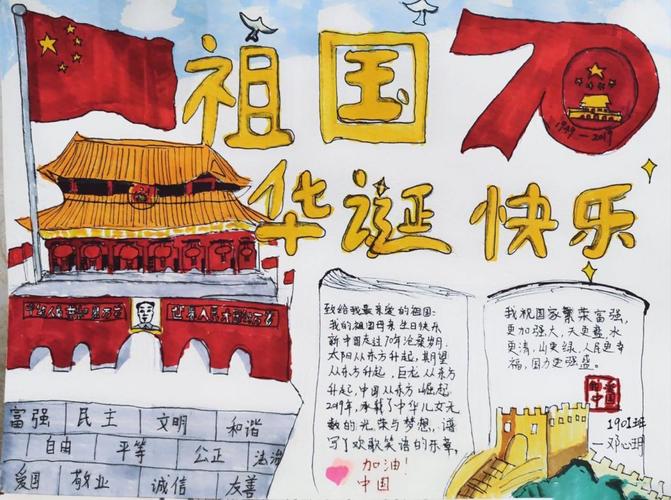 祖国 70
1949-2019
华诞 快乐
致给我最亲爱的祖国:
我的祖国母亲生日快乐
新中国走过70年沧桑岁月.
太阳从东方升起,期望
从东方升起,巨龙从东方
升起,中国从东方崛起.
2019年,承载了中华儿女无
数的光荣与梦想,谱
写了欢歌笑语的乐章,
加油!
中国
我祝国家繁荣富强,
更加强大,天更蓝,水
更清,山更绿,人民更幸
福,国力更强盛。
1901班
—邓心玥
富强 民主 文明 和谐
自由 平等 公正 法治
爱国 敬业 诚信 友善